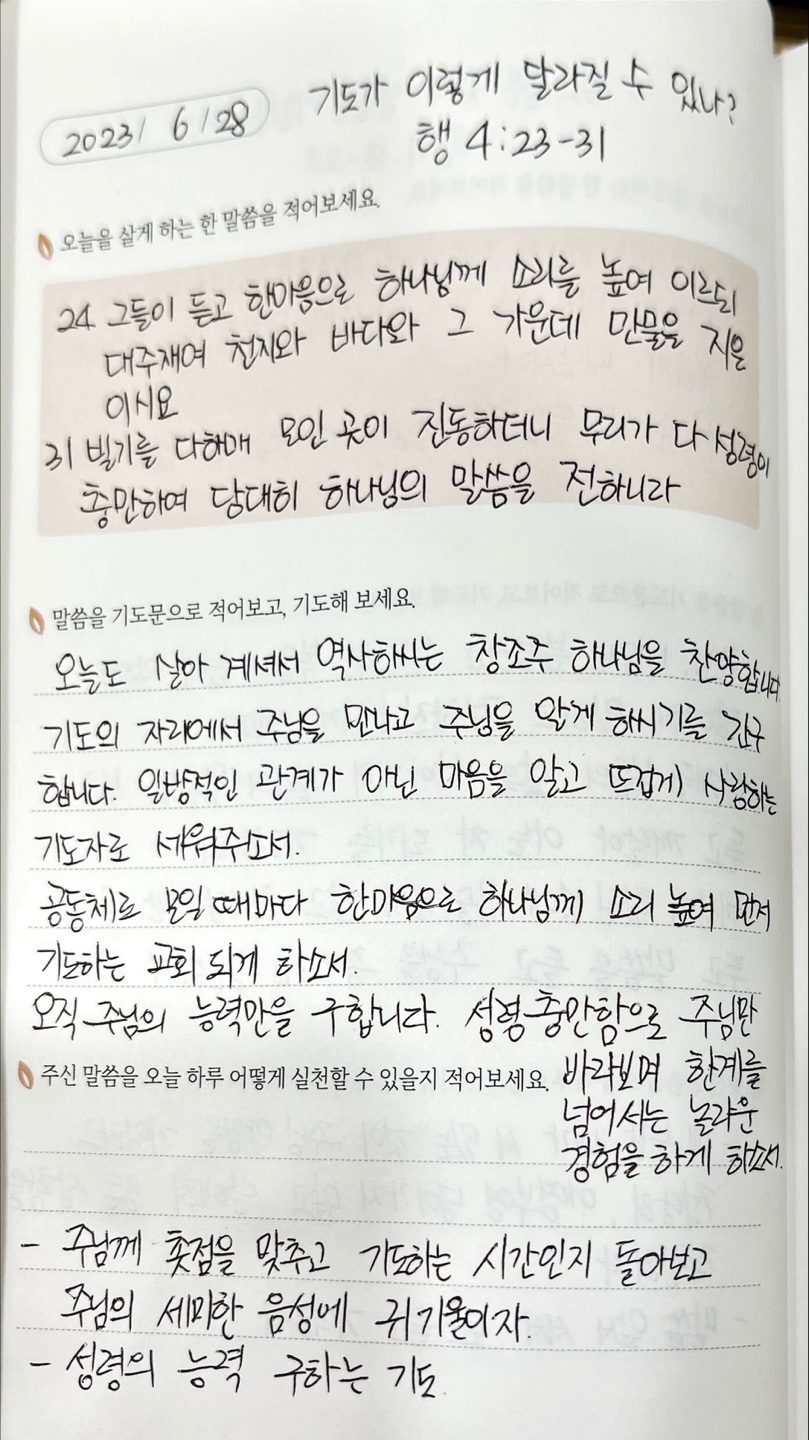 기도가 이렇게 달라질 수 있나?
2023/ 6/28
행 4:23-31
오늘을 살게 하는 한 말씀을 적어보세요.
24 그들이 듣고 한마음으로 하나님께 소리를 높여 이르되
대주재여 천지와 바다와 그 가운데 만물을 지은
이시요
31 빌기를 다하매 모인 곳이 진동하더니 무리가 다 성령이
충만하여 담대히 하나님의 말씀을 전하니라
말씀을 기도문으로 적어보고, 기도해 보세요.
오늘도 살아 계셔서 역사하시는 창조주 하나님을 찬양합니다
기도의 자리에서 주님을 만나고 주님을 알게 하시기를 간구
합니다. 일방적인 관계가 아닌 마음을 알고 뜨겁게 사랑하는
기도자로 세워주소서.
공동체로 모일 때마다 한마음으로 하나님께 소리 높여 먼저
기도하는 교회 되게 하소서.
오직 주님의 능력만을 구합니다. 성령충만함으로 주님만
바라보며 한계를
넘어서는 놀라운
경험을 하게 하소서.
주신 말씀을 오늘 하루 어떻게 실천할 수 있을지 적어보세요.
- 주님께 촛점을 맞추고 기도하는 시간인지 돌아보고
주님의 세미한 음성에 귀 기울이자.
- 성령의 능력 구하는 기도.